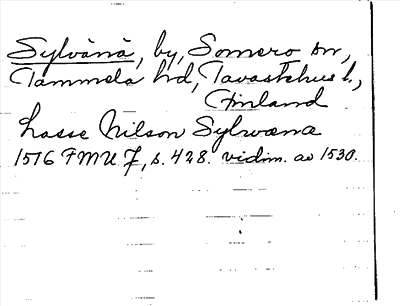 Sylvänä, by, Somero sn,
Tammela hd, Tavastehus l.,
Finland
Lasse Nilson Sylwæna
1516 FMU 7, s. 428. vidim. av 1530.